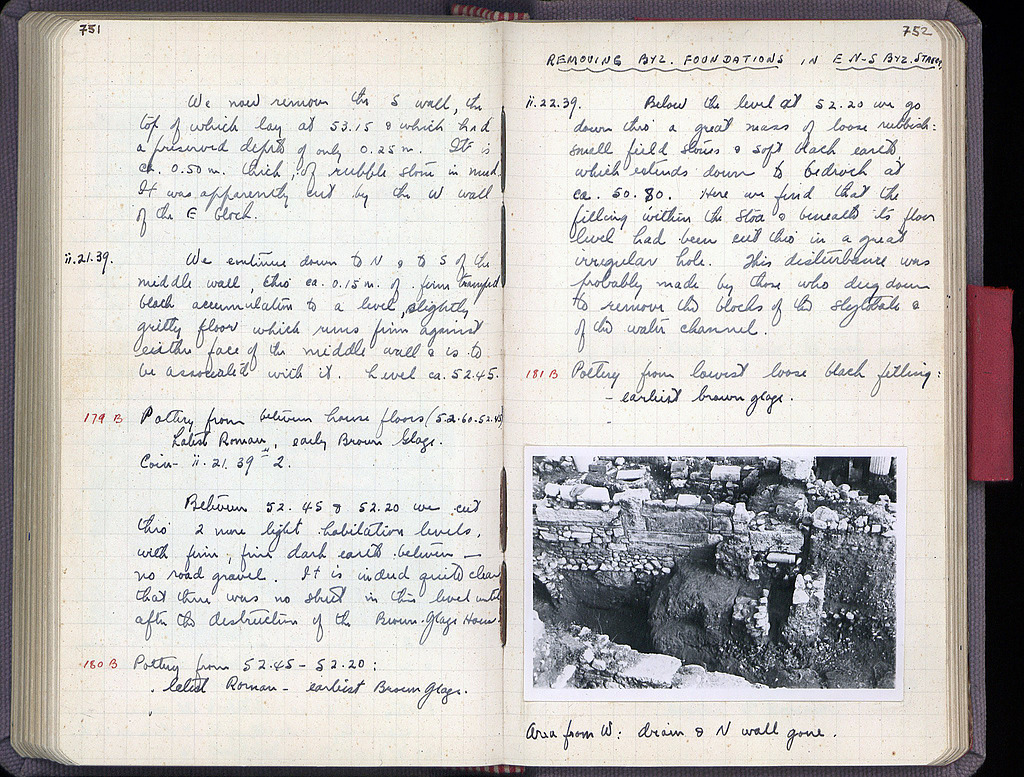 751
We now remove the S wall, the
top of which lay at 53.15 & which had
a preserved depth of only 0.25 m. It is
ca. 0.50 m. thick, of rubble stone in mud.
It was apparently cut by the W wall
of the E block.
ii.21.39. We continue down to N & to S of the
middle wall, thro' ca. 0.15 m. of firm tramped
black accumulation to a level, slightly
gritty floor which runs firm against
either face of the middle wall & is to
be associated with it. Level ca. 52.45.
179 B Pottery from between house floors (52.60-52.45)
Latest Roman, early Brown Glaze.
Coin - ii.21.39 # 2.
Between 52.45 & 52.20 we cut
thro' 2 more light habitation levels,
with firm, fine dark earth between –
no road gravel. It is indeed quite clear
that there was no street in this level until
after the destruction of the Brown-Glaze House.
180 B Pottery from 52.45 – 52.20:
Latest Roman – earliest Brown Glaze.
752
REMOVING BYZ. FOUNDATIONS IN E N-S BYZ. STREET
ii.22.39. Below the level at 52.20 we go
down thro' a great mass of loose rubbish:
small field stones & soft black earth
which extends down to bedrock at
ca. 50.80. Here we find that the
filling within the Stoa & beneath its floor
level had been cut thro' in a great
irregular hole. This disturbance was
probably made by those who dug down
to remove the blocks of the stylobate &
of the water channel.
181 B Pottery from lowest loose black filling:
– earliest brown glaze.
Area from W: drain & N wall gone.